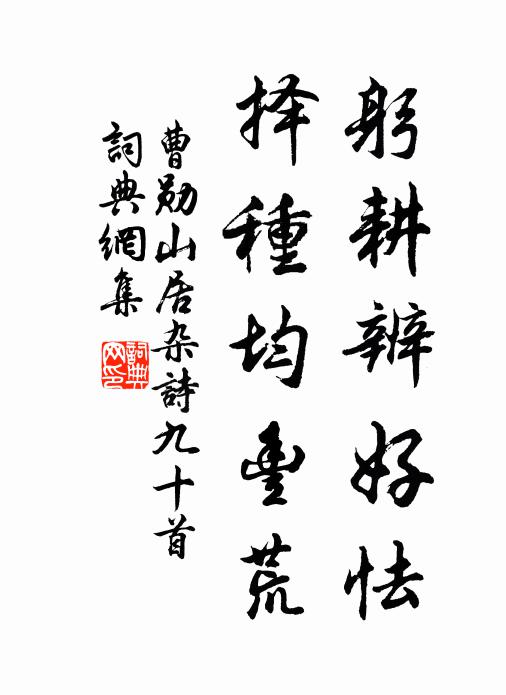 躬耕辨好怯
择種均豊荒
曹勋山居杂詩九十首
詞典網集
詞典网印